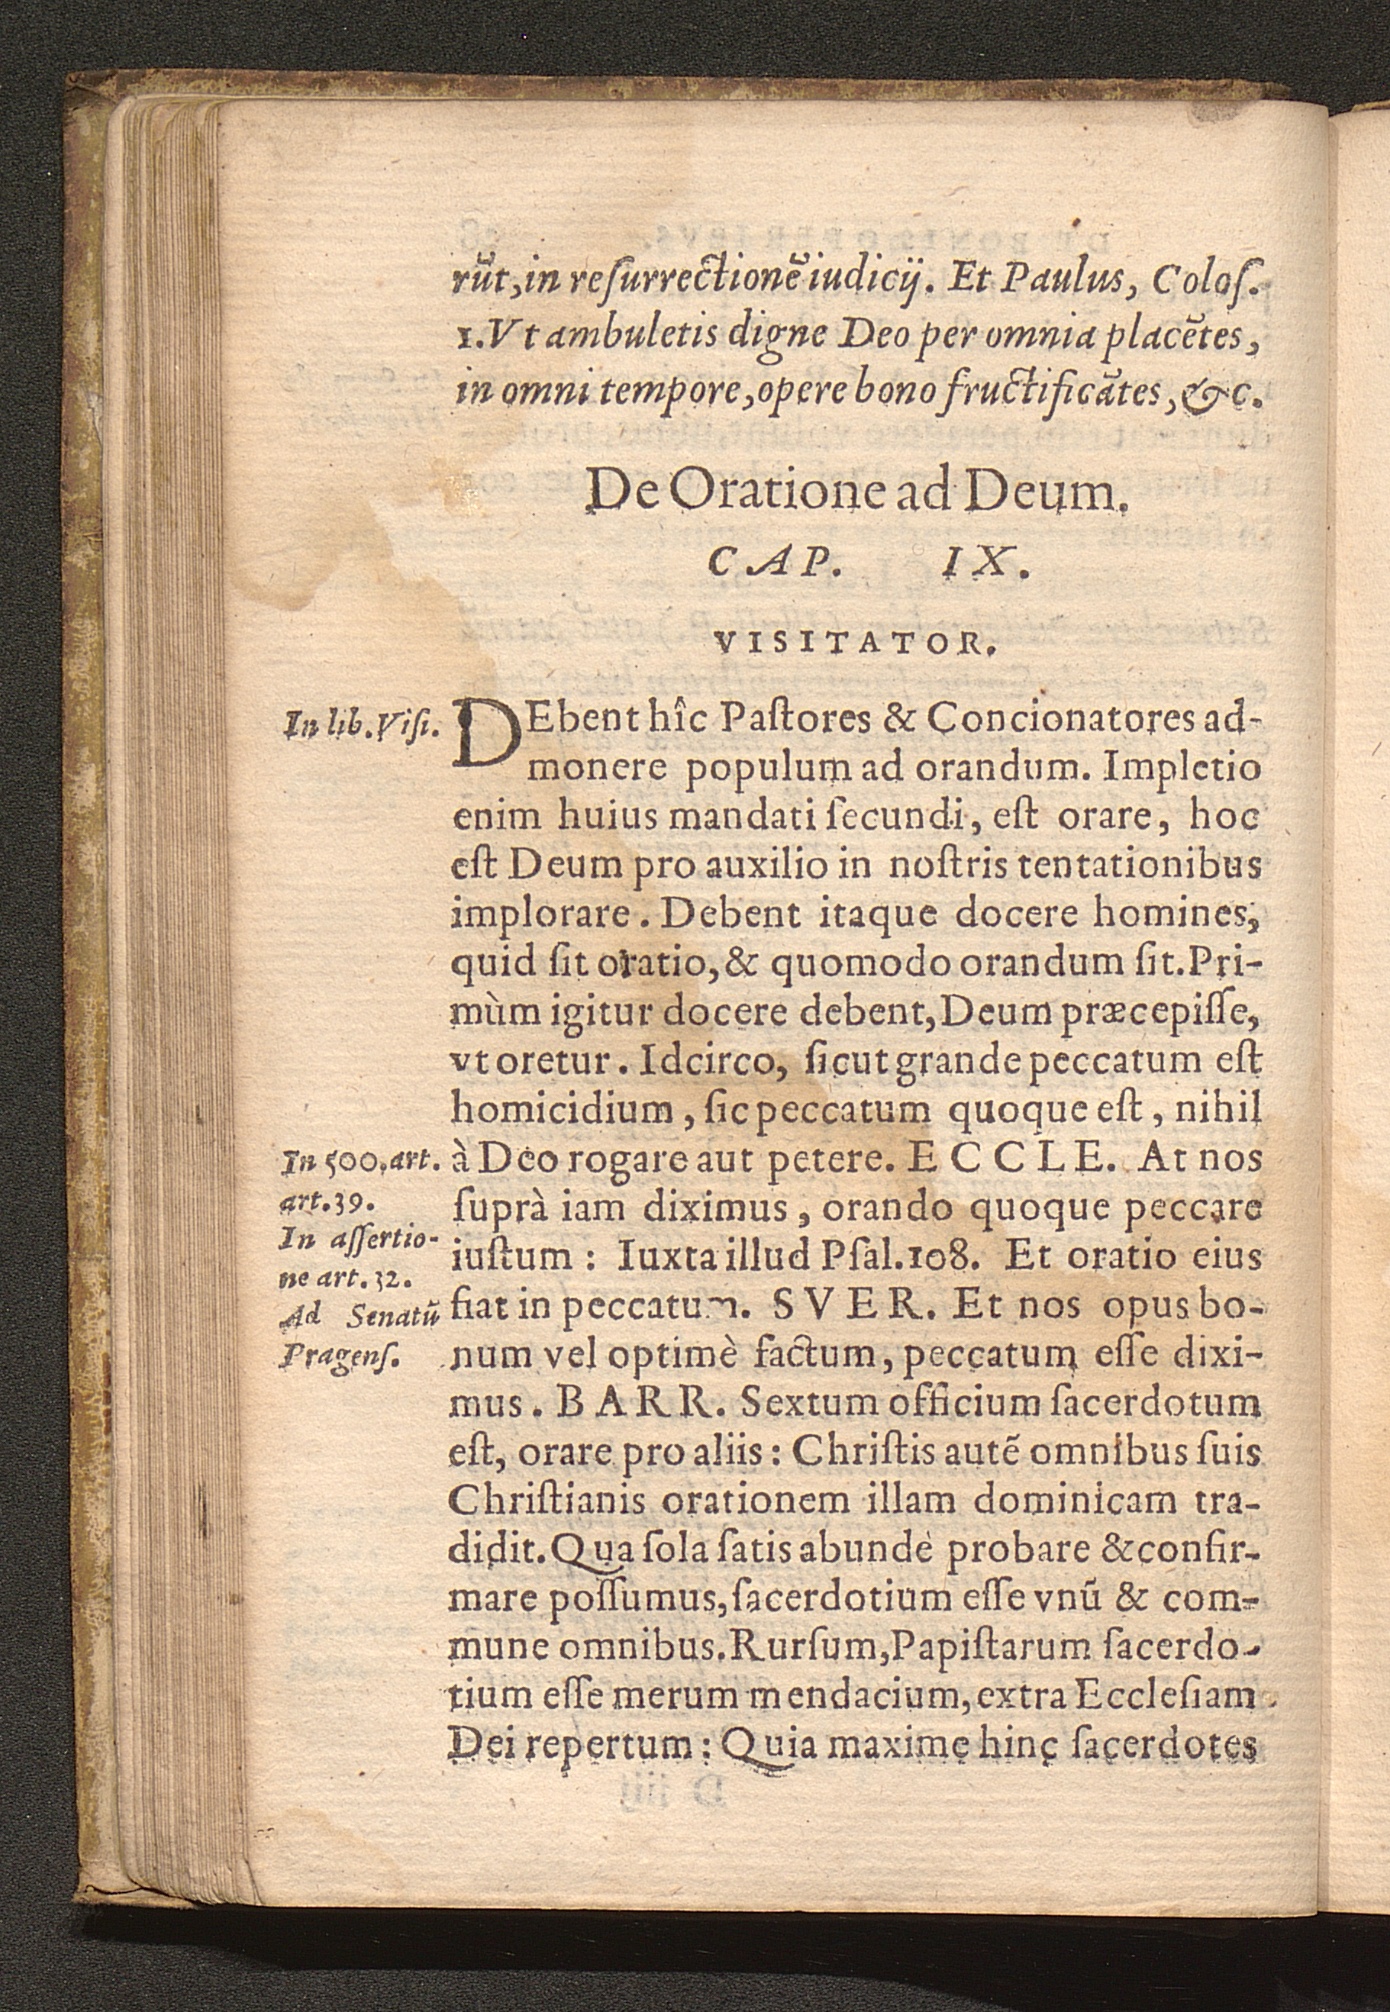 rũt, in reſurrectionẽ iudicij. Et Paulus, Coloſ.
1. Vt ambuletis digne Deo per omnia placẽtes,
in omni tempore, opere bono fructificãtes, &c.
De Oratione ad Deum.
CAP. IX.
VISITATOR.
In lib. Viſi.
DEbent hîc Paſtores & Concionatores ad-
monere populum ad orandum. Impletio
enim huius mandati ſecundi, eſt orare, hoc
eſt Deum pro auxilio in noſtris tentationibus
implorare. Debent itaque docere homines,
quid ſit oratio, & quomodo orandum ſit. Pri-
mùm igitur docere debent, Deum præcepiſſe,
vt oretur. Idcirco, ſicut grande peccatum eſt
homicidium, ſic peccatum quoque eſt, nihil
In 500. art.
art. 39.
In aſſertio-
ne art. 32.
Ad Senatũ
Pragenſ.
à Deo rogare aut petere. ECCLE. At nos
ſuprà iam diximus, orando quoque peccare
iuſtum: Iuxta illud Pſal. 108. Et oratio eius
fiat in peccatum. SVER. Et nos opus bo-
num vel optimè factum, peccatum eſſe dixi-
mus. BARR. Sextum officium ſacerdotum
eſt, orare pro aliis: Chriſtis autẽ omnibus ſuis
Chriſtianis orationem illam dominicam tra-
didit. Qua ſola ſatis abundè probare & confir-
mare poſſumus, ſacerdotium eſſe vnũ & com-
mune omnibus. Rurſum, Papiſtarum ſacerdo-
tium eſſe merum mendacium, extra Eccleſiam
Dei repertum: Quia maxime hinc ſacerdotes